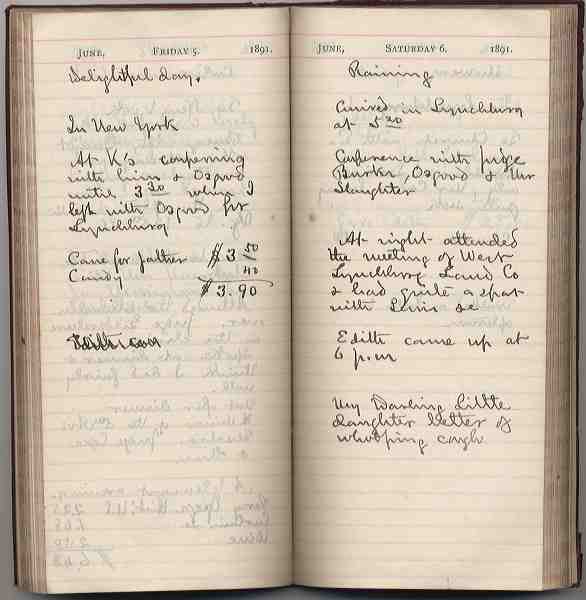 JUNE, FRIDAY 5. 1891.
Delightful day.
In New York
At K's conferring
with him & Osgood
until 3 30 when I
left with Osgood for
Lynchburg
Cane for father $3 50
Candy 40
$3.90
Edith
JUNE, SATURDAY 6. 1891.
Raining
Arrived in Lynchburg
at 5 20
Conference with judge
Burks, Osgood & Mr
Slaughter
At night attended
the meeting of West
Lynchburg Land Co
& had quite a spat
with
Edith came up at
6 p.m
My Darling little
daughter better of
whooping cough